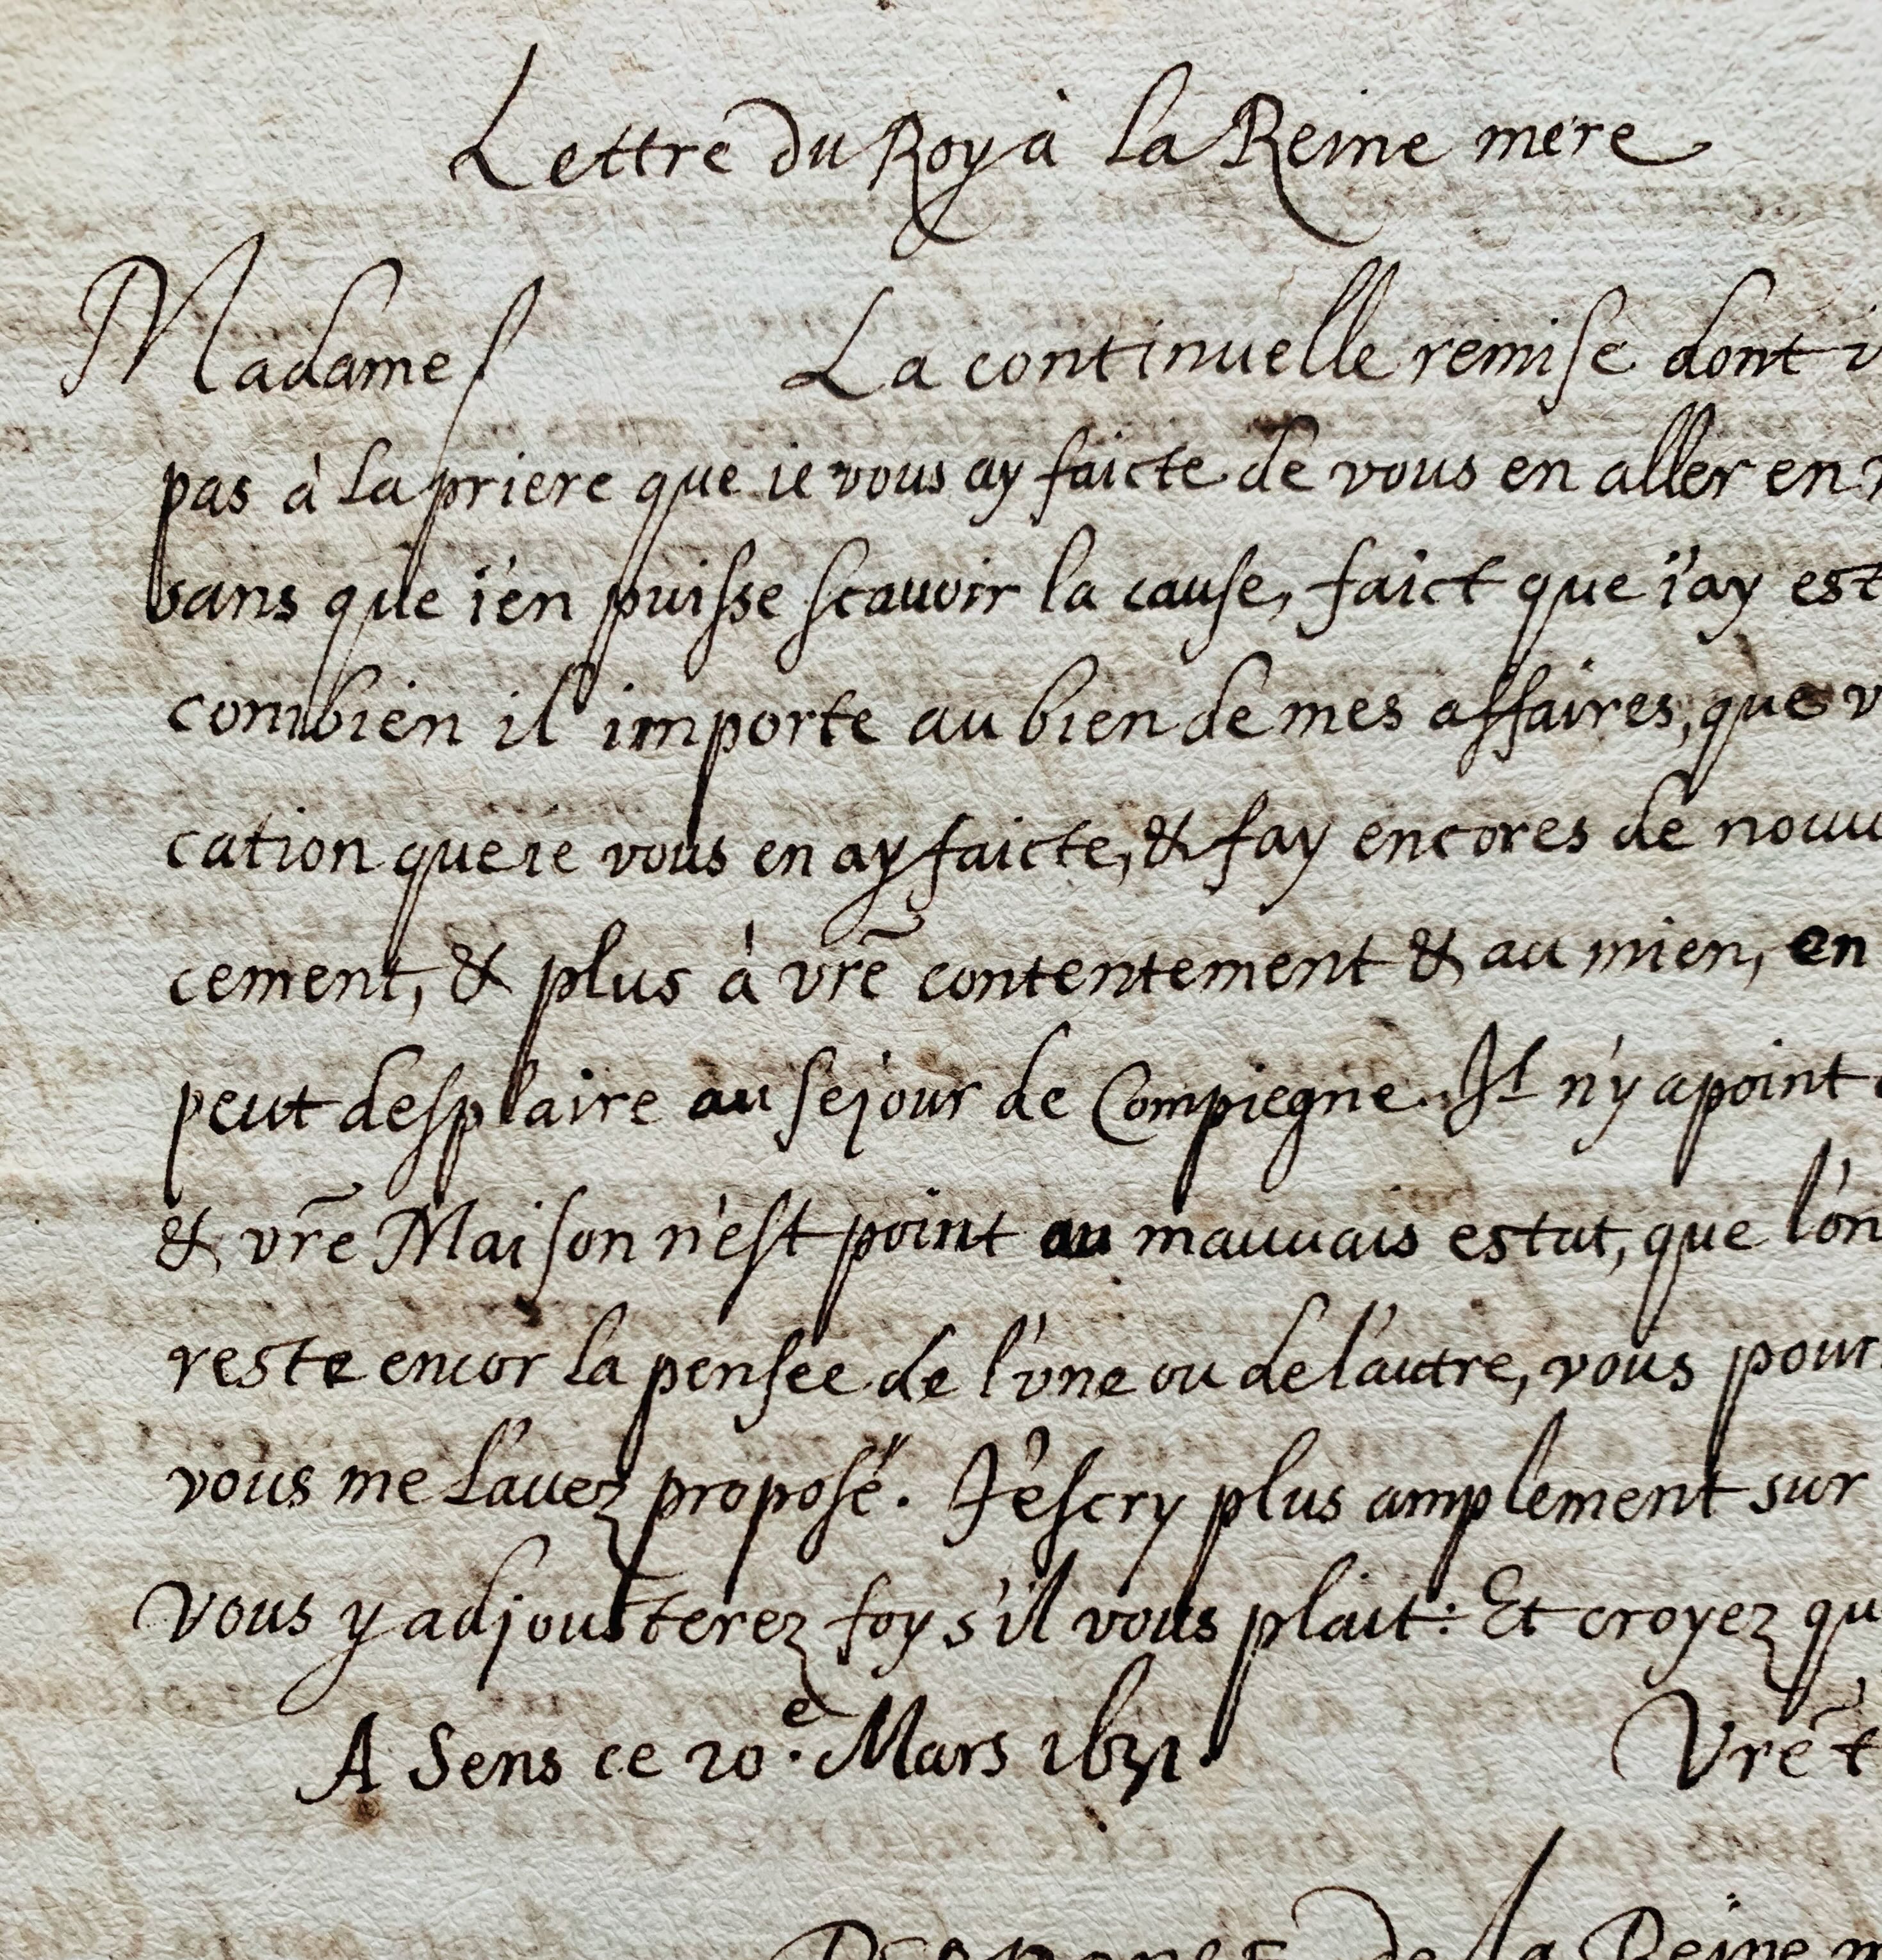 Lettre du Roy à la Reine mere
Madame La continuelle remise dont
pas à la priere que ie vous ay faicte de vous en aller en
sans que i'en puisse scauoir la cause, faict que i'ay est
combien il importe au bien de mes affaires, que v
cation que ie vous en ay faicte, & fay encores de nouu
cement, & plus à vr̃e contentement & au mien, en
peut desplaire au sejour de Compiegne. Il n'y a point
& vr̃e Maison n'est point au mauuais estat, que l'on
reste encor la pensee de l'vne ou de l'autre, vous pour
vous me l'auez proposé. J'escry plus amplement sur
vous y adjousterez foy s'il vous plait: Et croyez qu
A Sens ce 20.e Mars 1631. Vr̃e t
Response de la Reine m